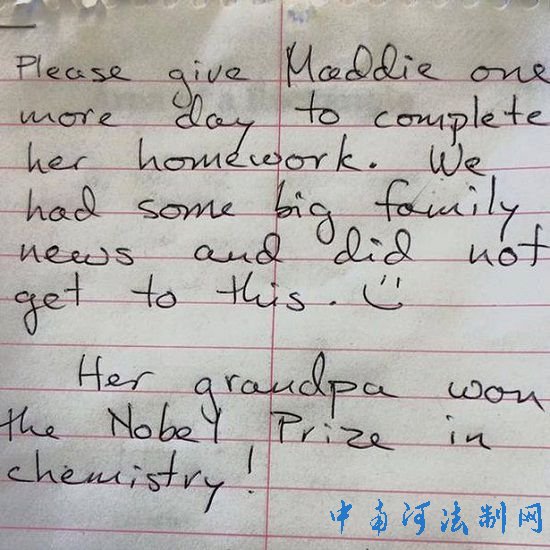 Please give Maddie one
more day to complete
her homework. We
had some big family
news and did not
get to this. :)
Her grandpa won
the Nobel Prize in
chemistry!
中南河法制网